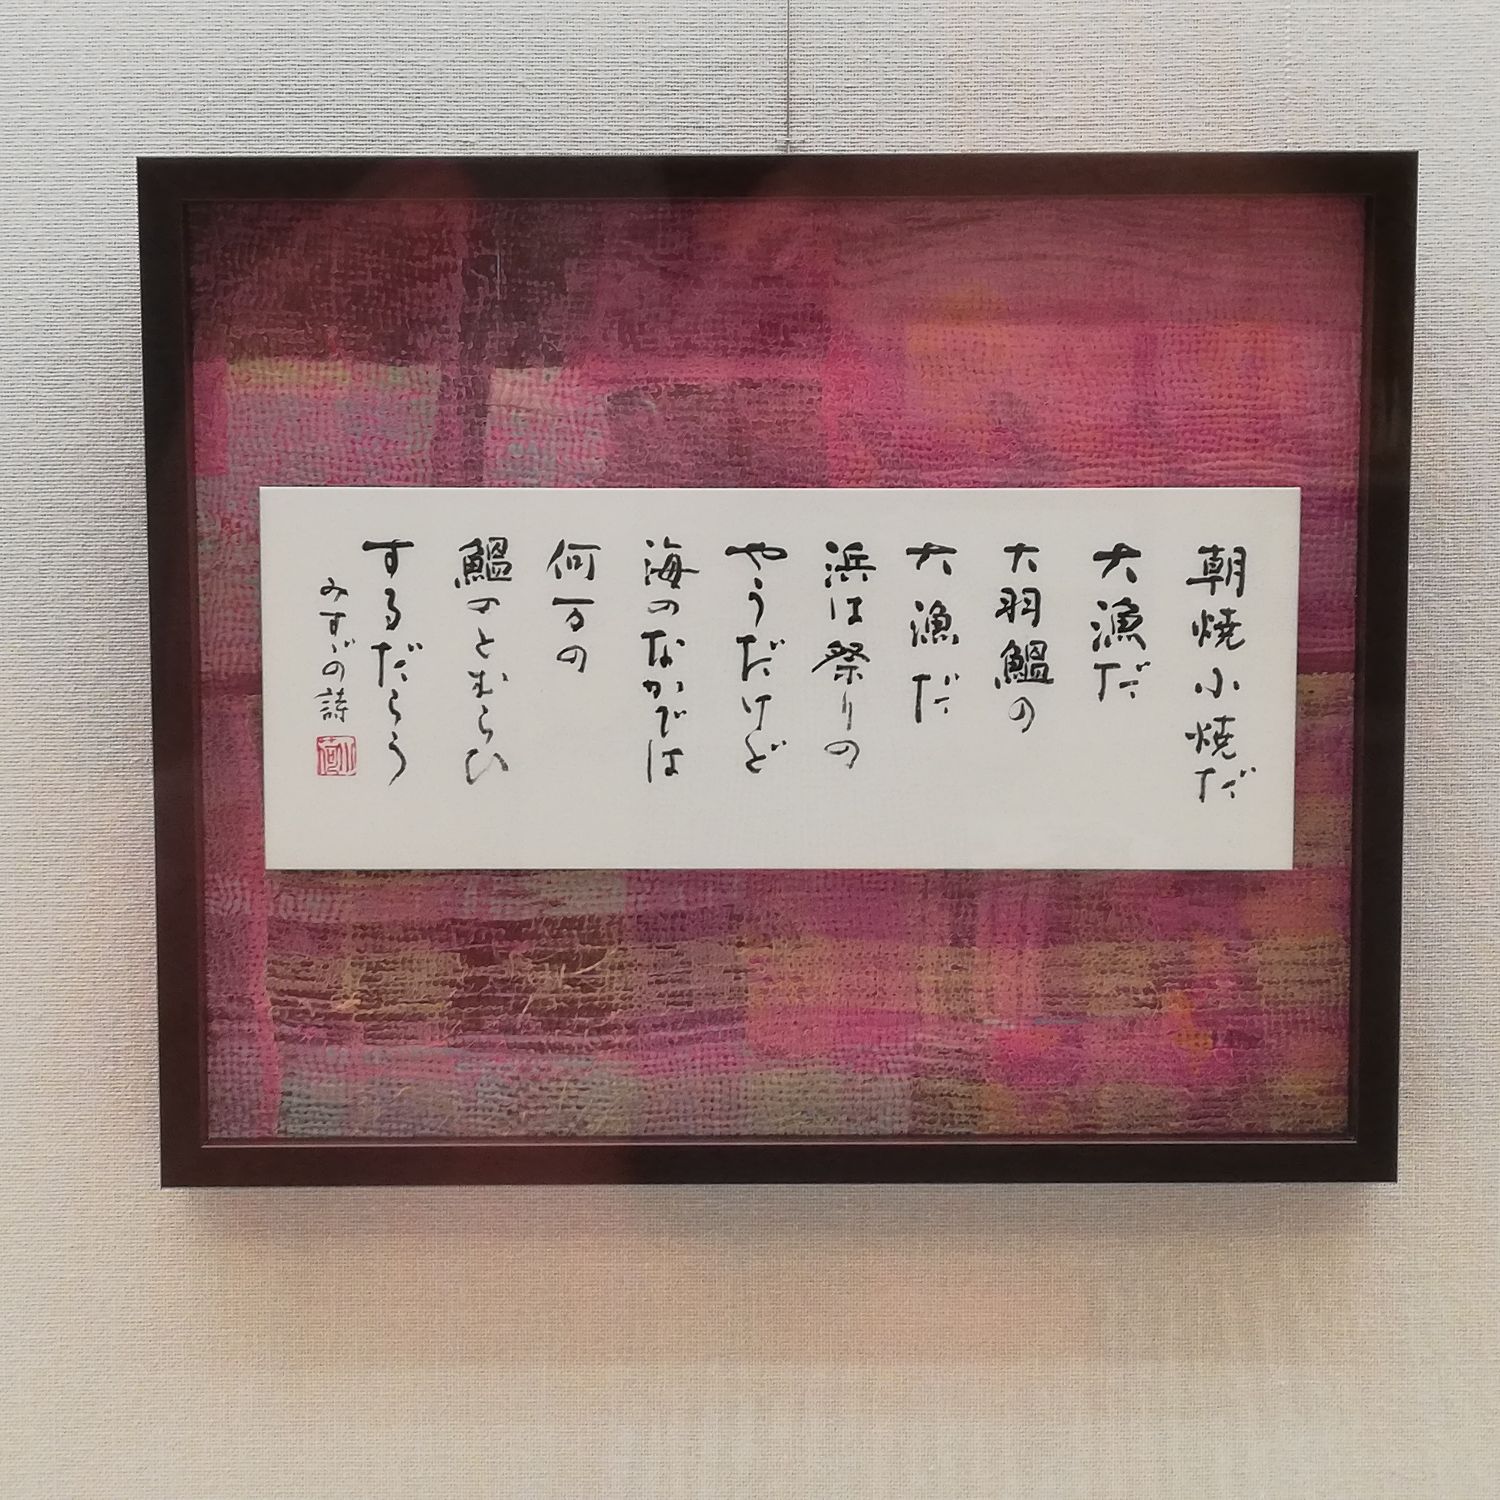 朝焼小焼だ
大漁だ
大羽鰮の
大漁だ
浜は祭りの
やうだけど
海のなかでは
何万の
鰮のとむらひ
するだらう
みすゞの詩